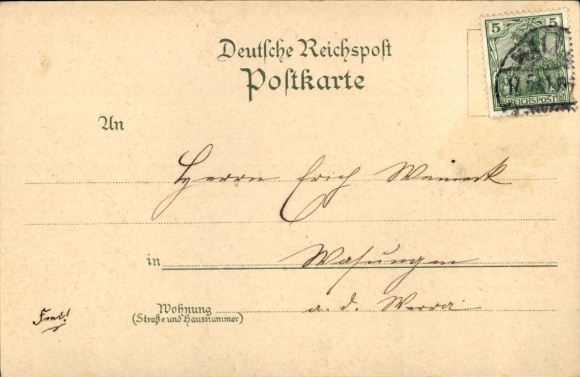 5 5
REICHSPOST
Deutsche Reichspost
Postkarte
An
Herrn Erich
in Wasungen
a. d. Werra
Wohnung
(Straße und Hausnummer)